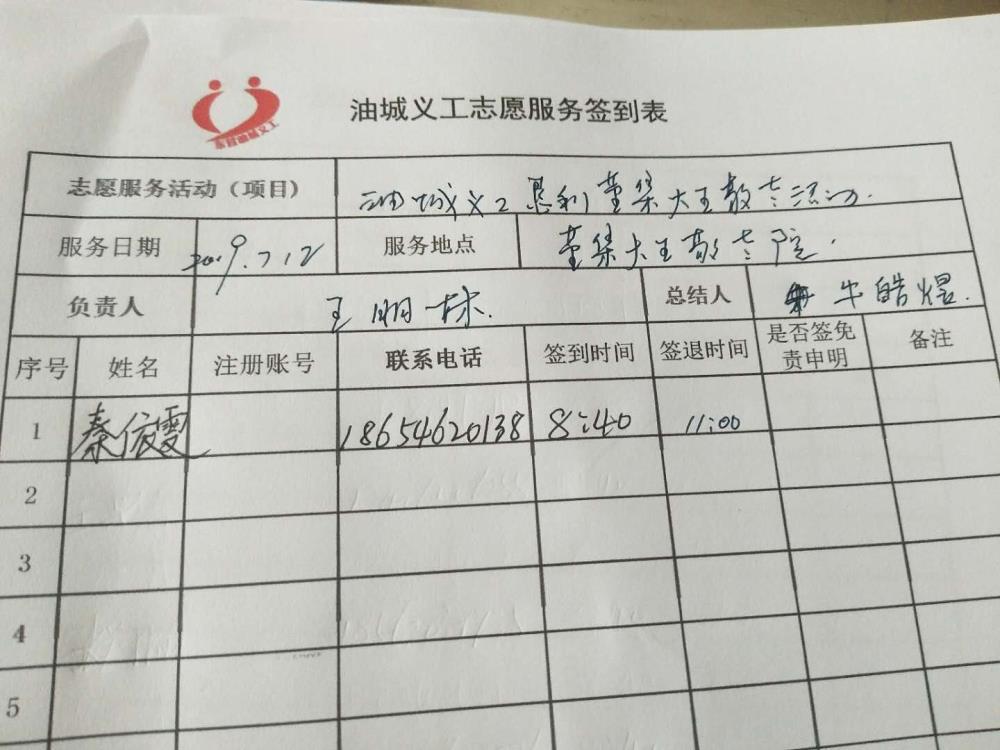 油城义工志愿服务签到表
志愿服务活动（项目） 油城义工垦利董集大王敬老活动.
服务日期 2019.7.12 服务地点 董集大王敬老院.
负责人 王明栋. 总结人 牛皓焜.
序号 姓名 注册账号 联系电话 签到时间 签退时间 是否签免责申明 备注
1 秦依雯 18654620138 8:40 11:00
2
3
4
5